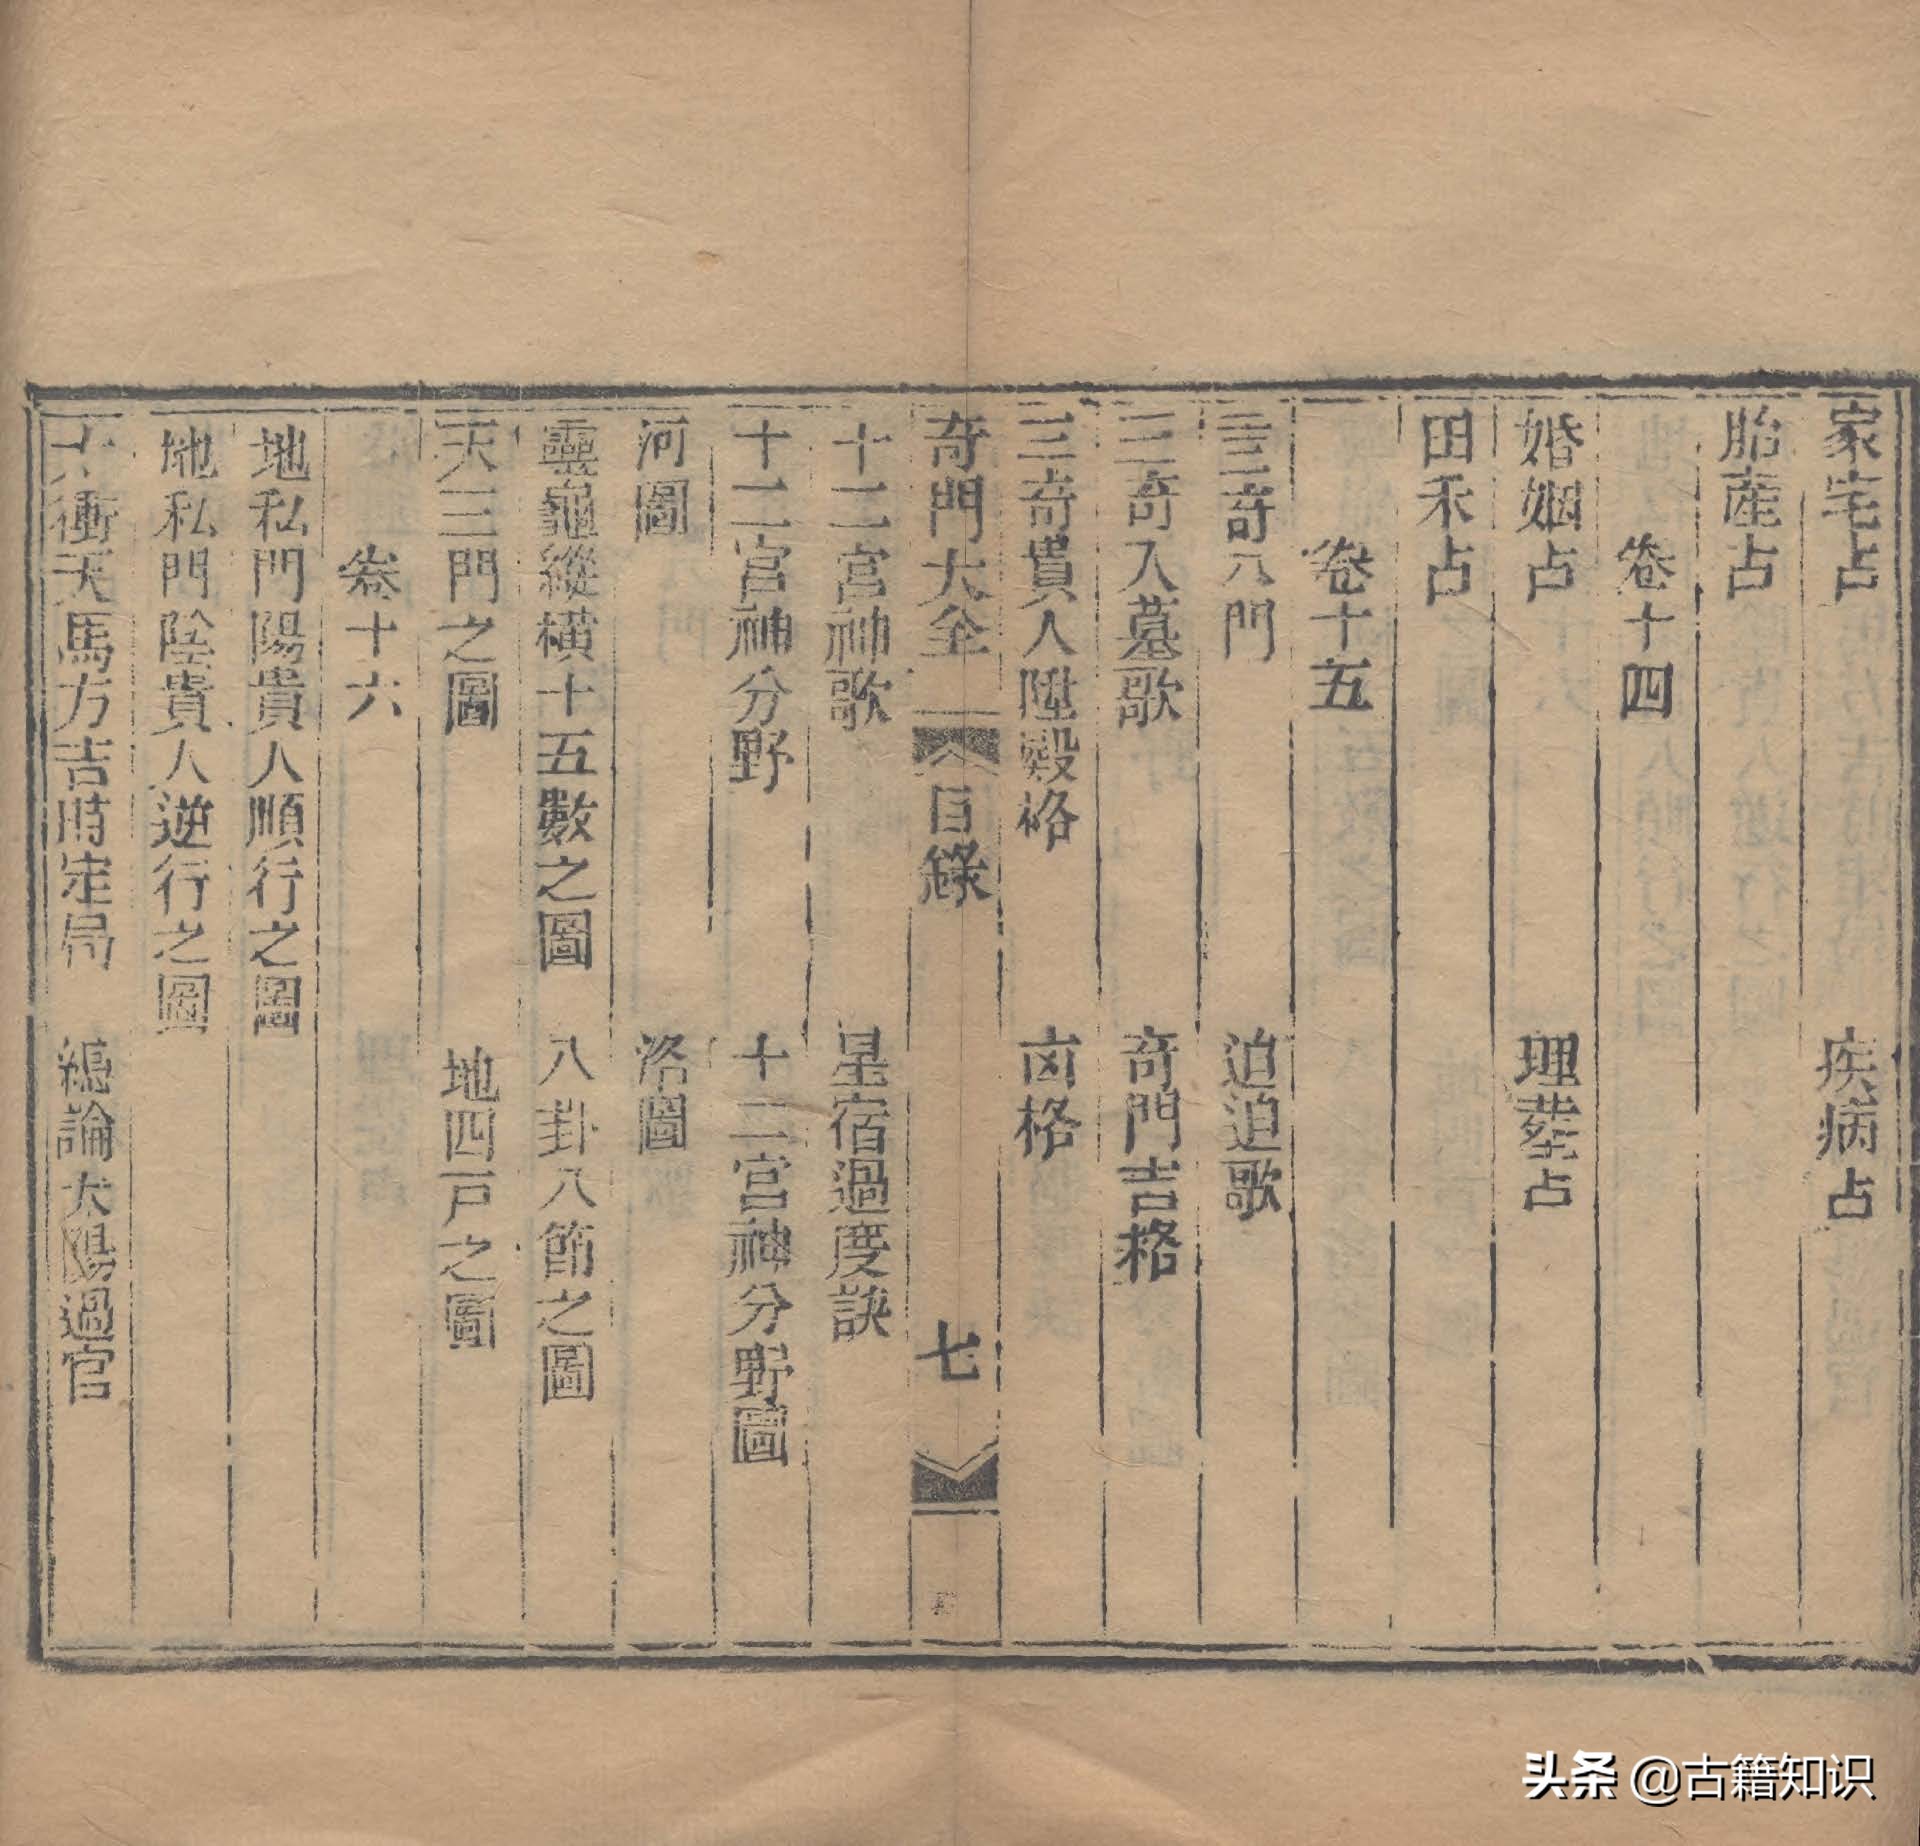 家宅占　疾病占
胎產占
卷十四
婚姻占　理塟占
田禾占
卷十五
三奇八門　迫迫歌
三奇入墓歌　奇門吉格
三奇貴人陞殿格　凶格
奇門大全　目錄　七
十二宮神歌　星宿過度訣
十二宮神分野　十二宮神分野圖
河圖　洛圖
靈龜縱橫十五數之圖　八卦八節之圖
天三門之圖　地四戸之圖
卷十六
地私門陽貴人順行之圖
地私門陰貴人逆行之圖
太衝天馬方吉時定局　總論太陽過宮
头条 @古籍知识